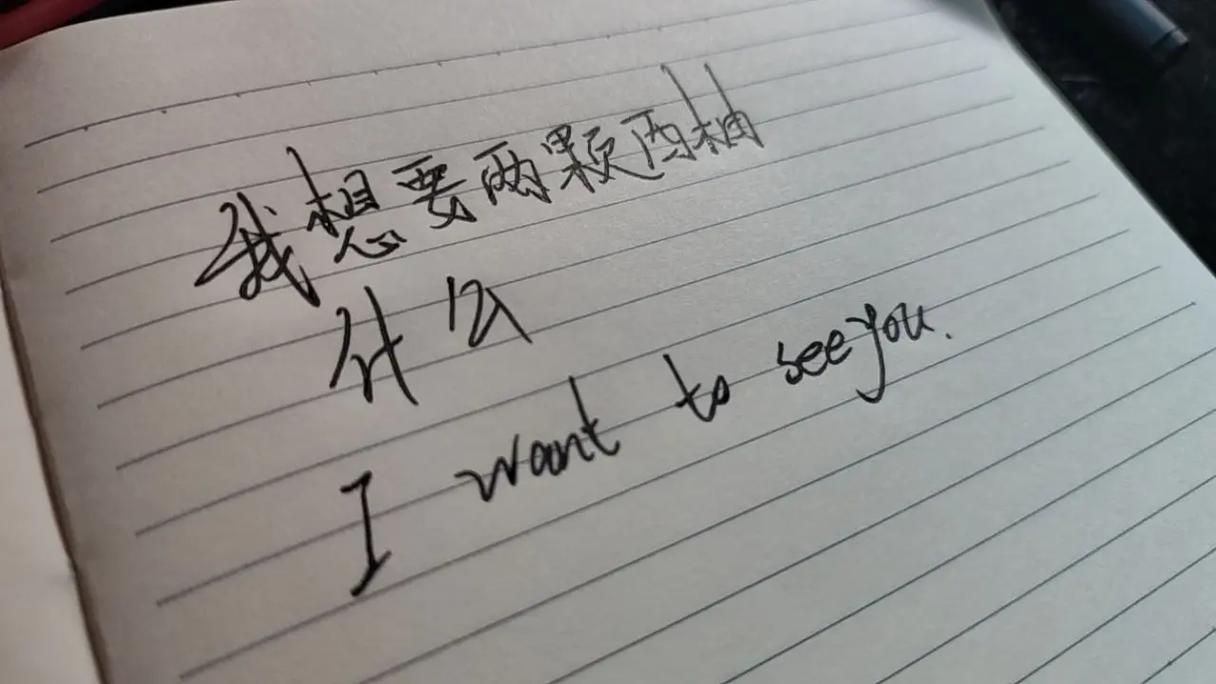 我想要两颗西柚
什么
I want to see you.